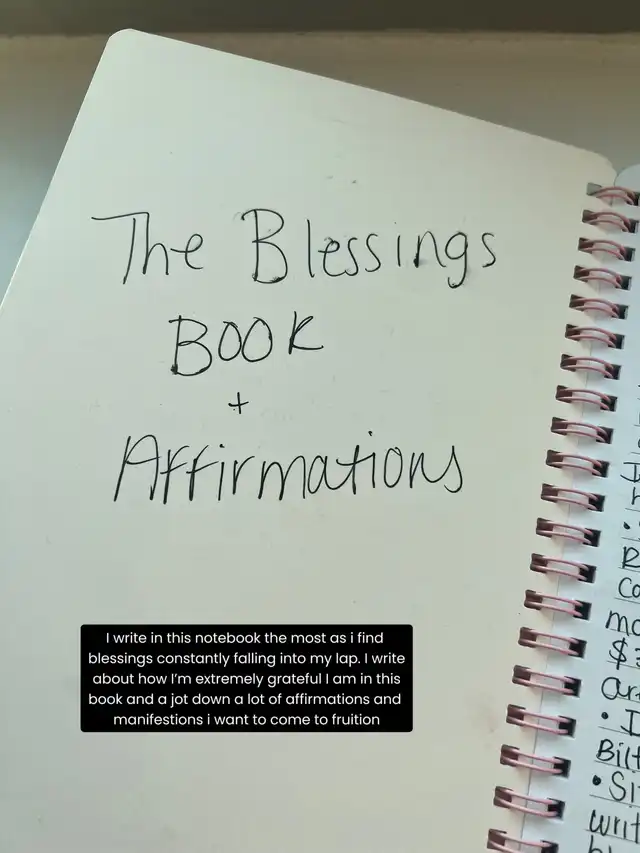 The Blessings
BOOK
+
Affirmations
I write in this notebook the most as i find
blessings constantly falling into my lap. I write
about how I'm extremely grateful I am in this
book and a jot down a lot of affirmations and
manifestions i want to come to fruition